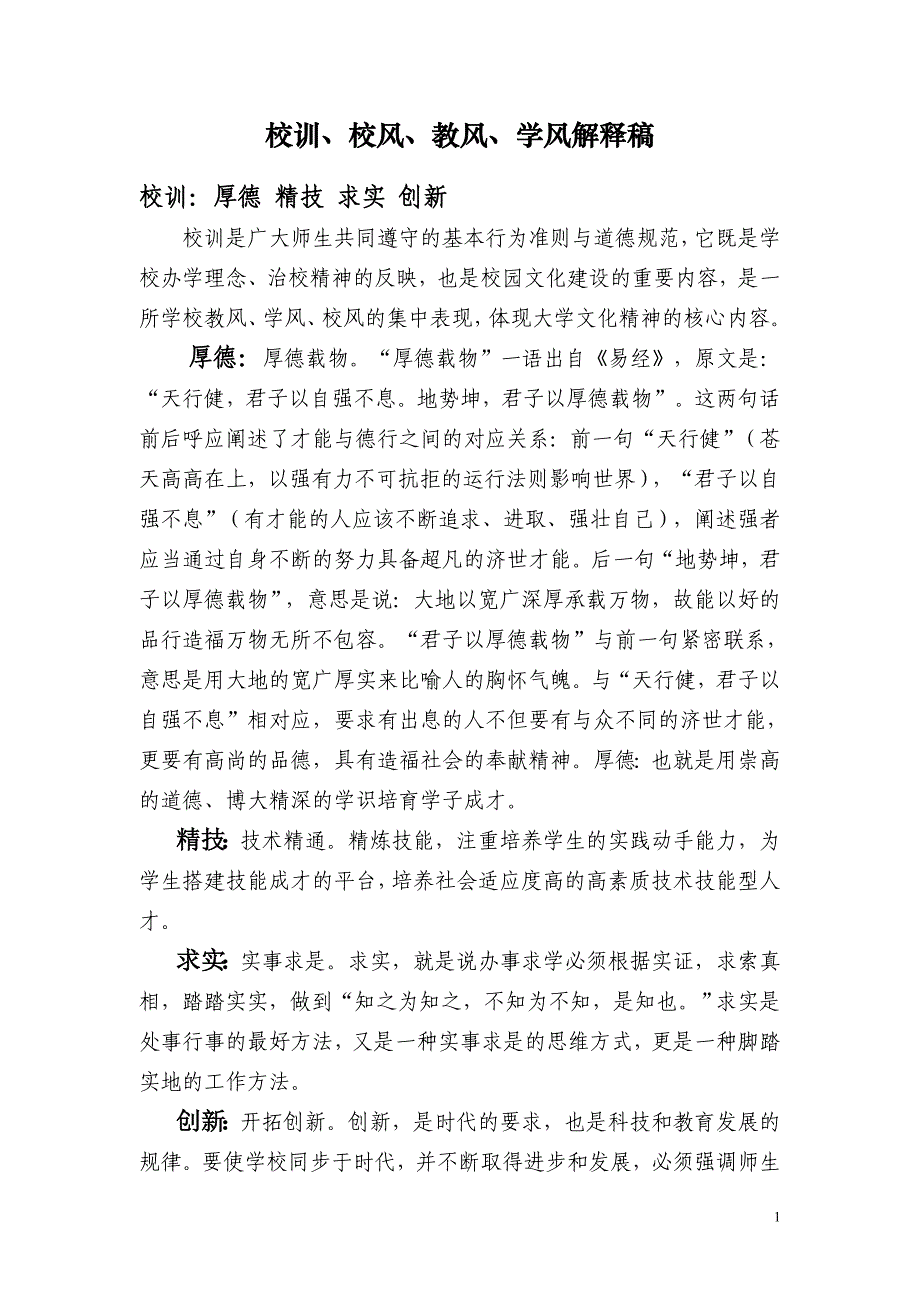 校训、校风、教风、学风解释稿
校训：厚德 精技 求实 创新
校训是广大师生共同遵守的基本行为准则与道德规范，它既是学
校办学理念、治校精神的反映，也是校园文化建设的重要内容，是一
所学校教风、学风、校风的集中表现，体现大学文化精神的核心内容。
厚德：厚德载物。“厚德载物”一语出自《易经》，原文是：
“天行健，君子以自强不息。地势坤，君子以厚德载物”。这两句话
前后呼应阐述了才能与德行之间的对应关系：前一句“天行健”（苍
天高高在上，以强有力不可抗拒的运行法则影响世界），“君子以自
强不息”（有才能的人应该不断追求、进取、强壮自己），阐述强者
应当通过自身不断的努力具备超凡的济世才能。后一句“地势坤，君
子以厚德载物”，意思是说：大地以宽广深厚承载万物，故能以好的
品行造福万物无所不包容。“君子以厚德载物”与前一句紧密联系，
意思是用大地的宽广厚实来比喻人的胸怀气魄。与“天行健，君子以
自强不息”相对应，要求有出息的人不但要有与众不同的济世才能，
更要有高尚的品德，具有造福社会的奉献精神。厚德：也就是用崇高
的道德、博大精深的学识培育学子成才。
精技：技术精通。精炼技能，注重培养学生的实践动手能力，为
学生搭建技能成才的平台，培养社会适应度高的高素质技术技能型人
才。
求实：实事求是。求实，就是说办事求学必须根据实证，求索真
相，踏踏实实，做到“知之为知之，不知为不知，是知也。”求实是
处事行事的最好方法，又是一种实事求是的思维方式，更是一种脚踏
实地的工作方法。
创新：开拓创新。创新，是时代的要求，也是科技和教育发展的
规律。要使学校同步于时代，并不断取得进步和发展，必须强调师生
1